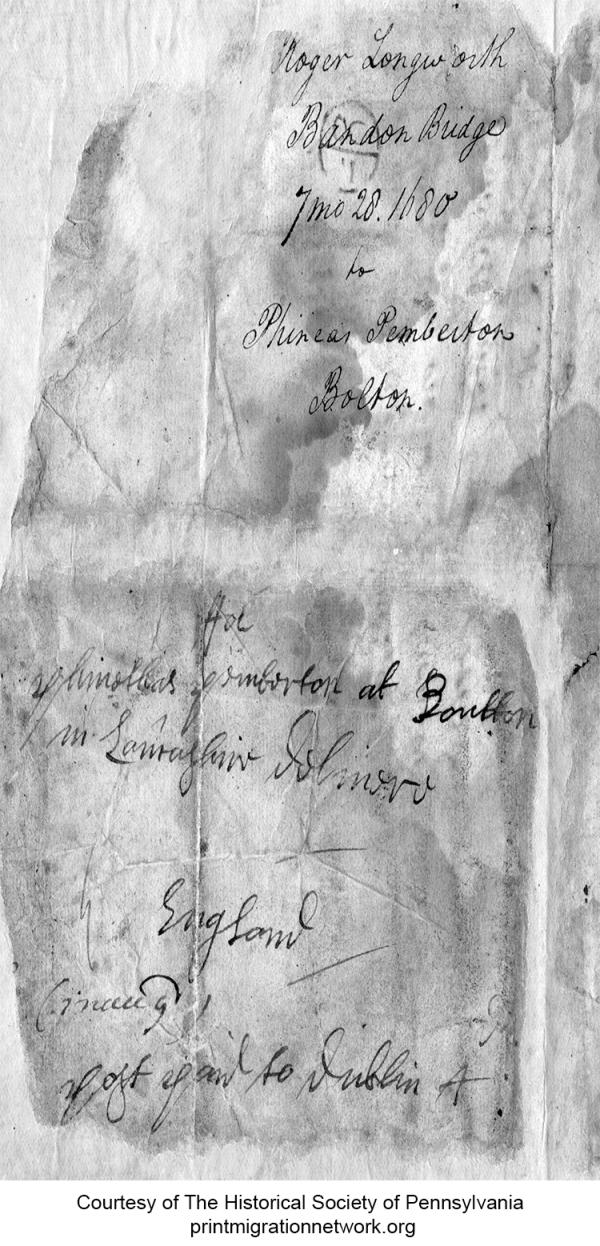 Roger Longworth
Bandon Bridge
7mo 28. 1680
to
Phineas Pemberton
Bolton.
for
phinehas pemberton at Boulton
in Lancashire deliver
England
post paid to dublin 4
Courtesy of The Historical Society of Pennsylvania
printmigrationnetwork.org